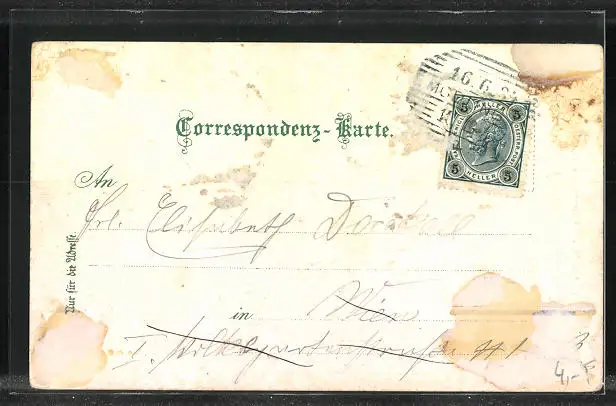 16.6
Correspondenz-Karte.
5 HELLER 5
5 HELLER 5
An
Frl. Elisabeth
Nur für die Adresse.
in Wien
I. Volksgartenstrasse
4,-